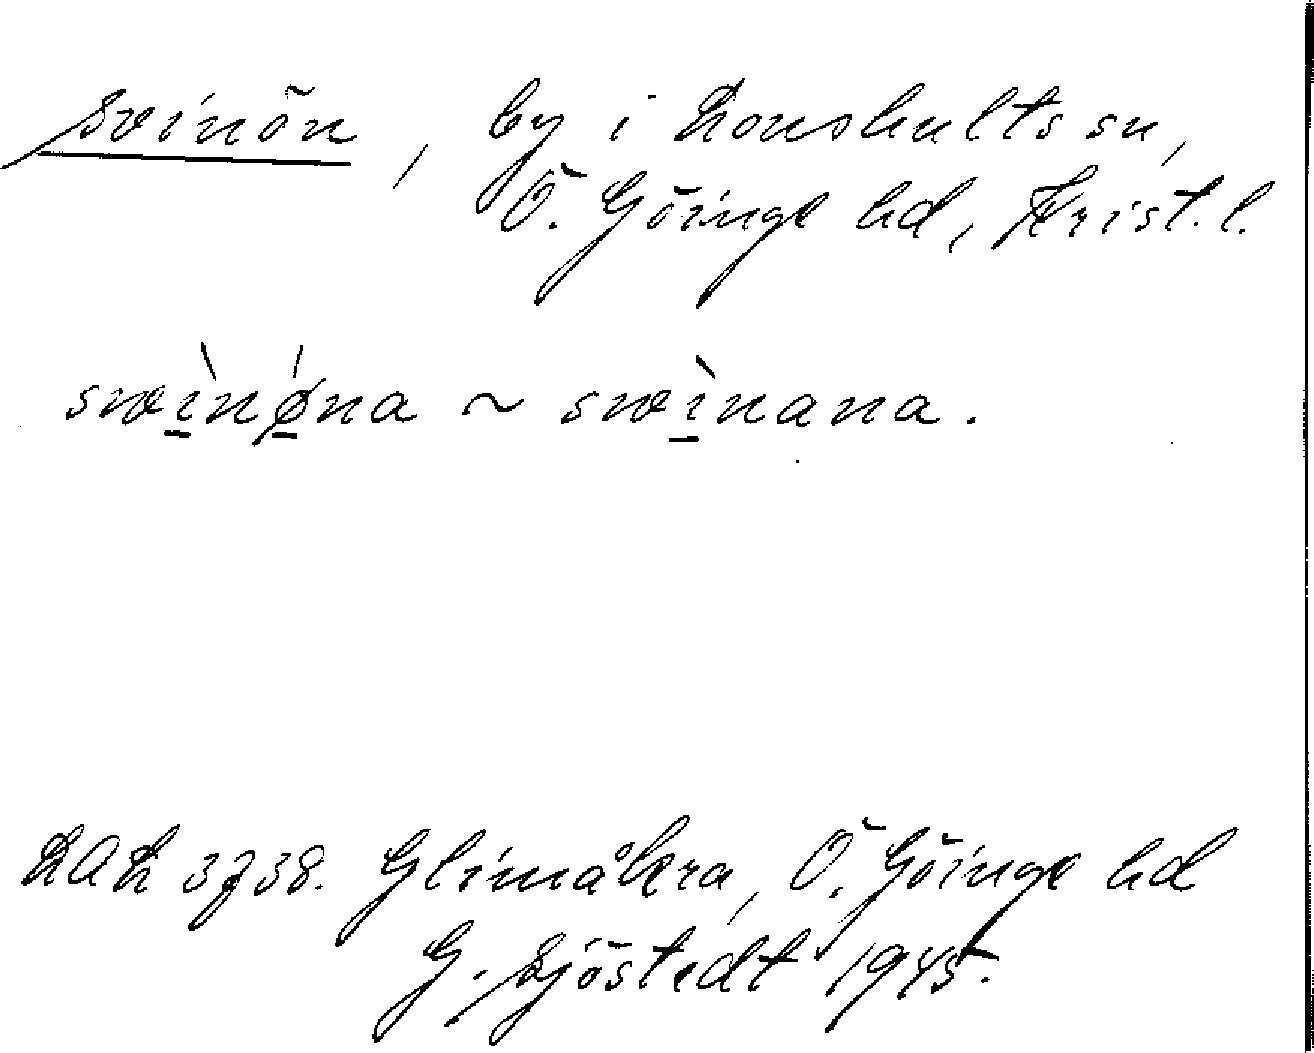 Svinön, by i Lonshults sn,
Ö. Göinge hd, Krist. l.
svìnǿna ~ svìnana.
LAL 3738. Glimåkra, Ö. Göinge hd
G. Sjöstedt 1945.